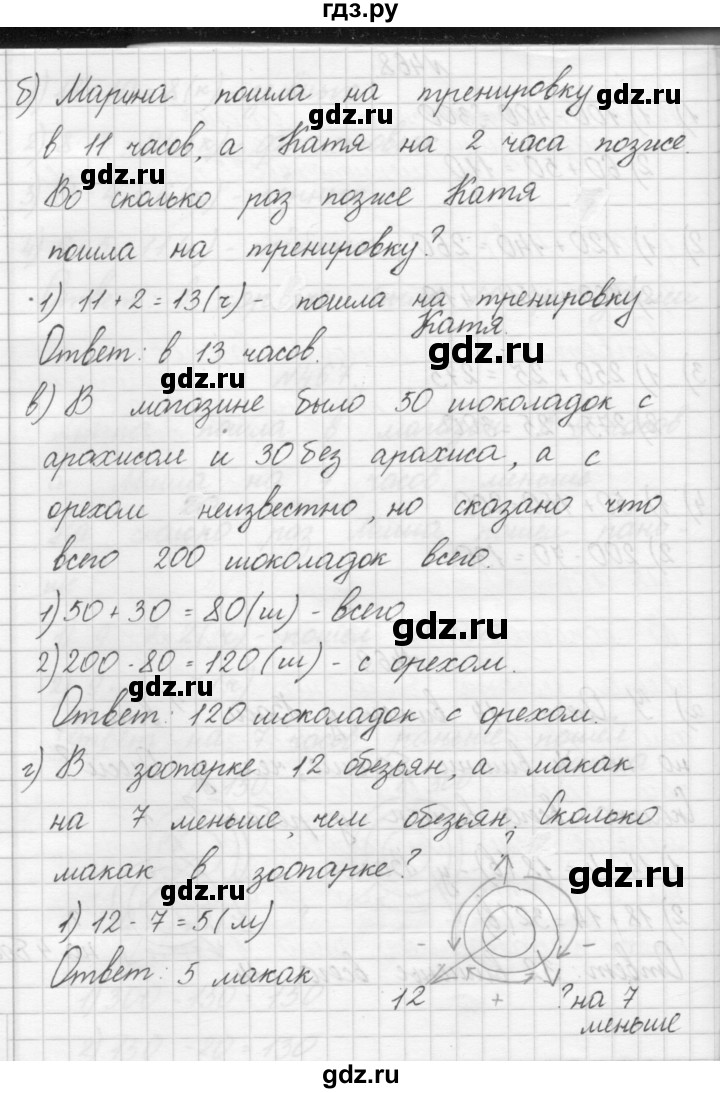 гдз.ру
б) Марина пошла на тренировку
в 11 часов, а Катя на 2 часа позже.
gdz.ru
Во сколько раз позже Катя
пошла на тренировку?
1) 11 + 2 = 13(ч) - пошла на тренировку
Катя.
Ответ: в 13 часов.
gdz.ru
gdz.ru
в) В магазине было 50 шоколадок с
арахисом и 30 без арахиса, а с
орехом неизвестно, но сказано что
gdz.ru
всего 200 шоколадок всего.
1) 50 + 30 = 80(ш) - всего
gdz.ru
2) 200 - 80 = 120(ш) - с орехом.
gdz.ru
Ответ: 120 шоколадок с орехом.
г) В зоопарке 12 обезьян, а макак
на 7 меньше, чем обезьян. Сколько
макак в зоопарке?
?
gdz.ru
gdz.ru
1) 12 - 7 = 5(м)
- -
Ответ: 5 макак
12 + ? на 7
меньше
gdz.ru
gdz.ru